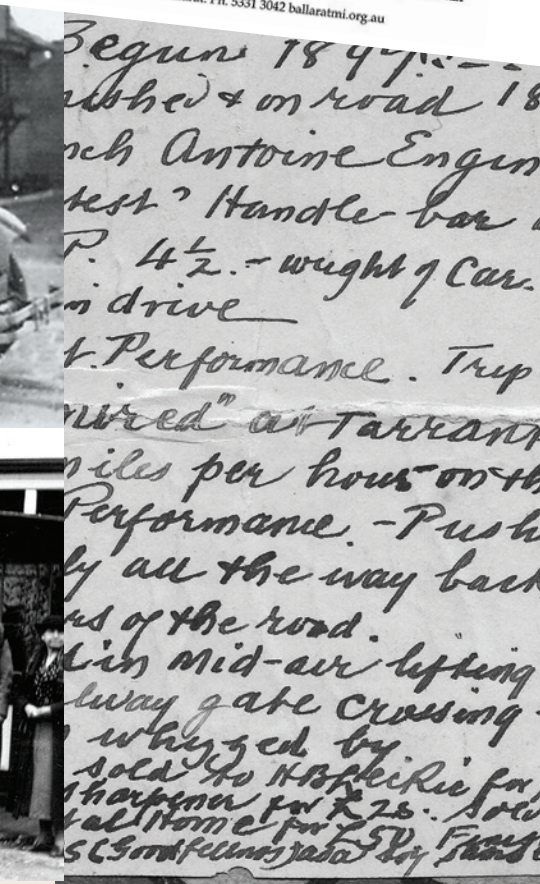 Ph. 5331 3042 ballaratmi.org.au
Begun 189
ished & on road 18
nch Antoine Engin
test" Handle-bar
P. 4½.- wught of Car.
n drive
t. Performance. Trip
uired" at Tarrant
miles per hour on th
Performance. -Push
ly all the way back
rs of the road.
in mid-air lifting
lway gate crossing
by
sold to for
sharpener for £25.. Sold
tal Home for £50
(Goodfellows) as a boy